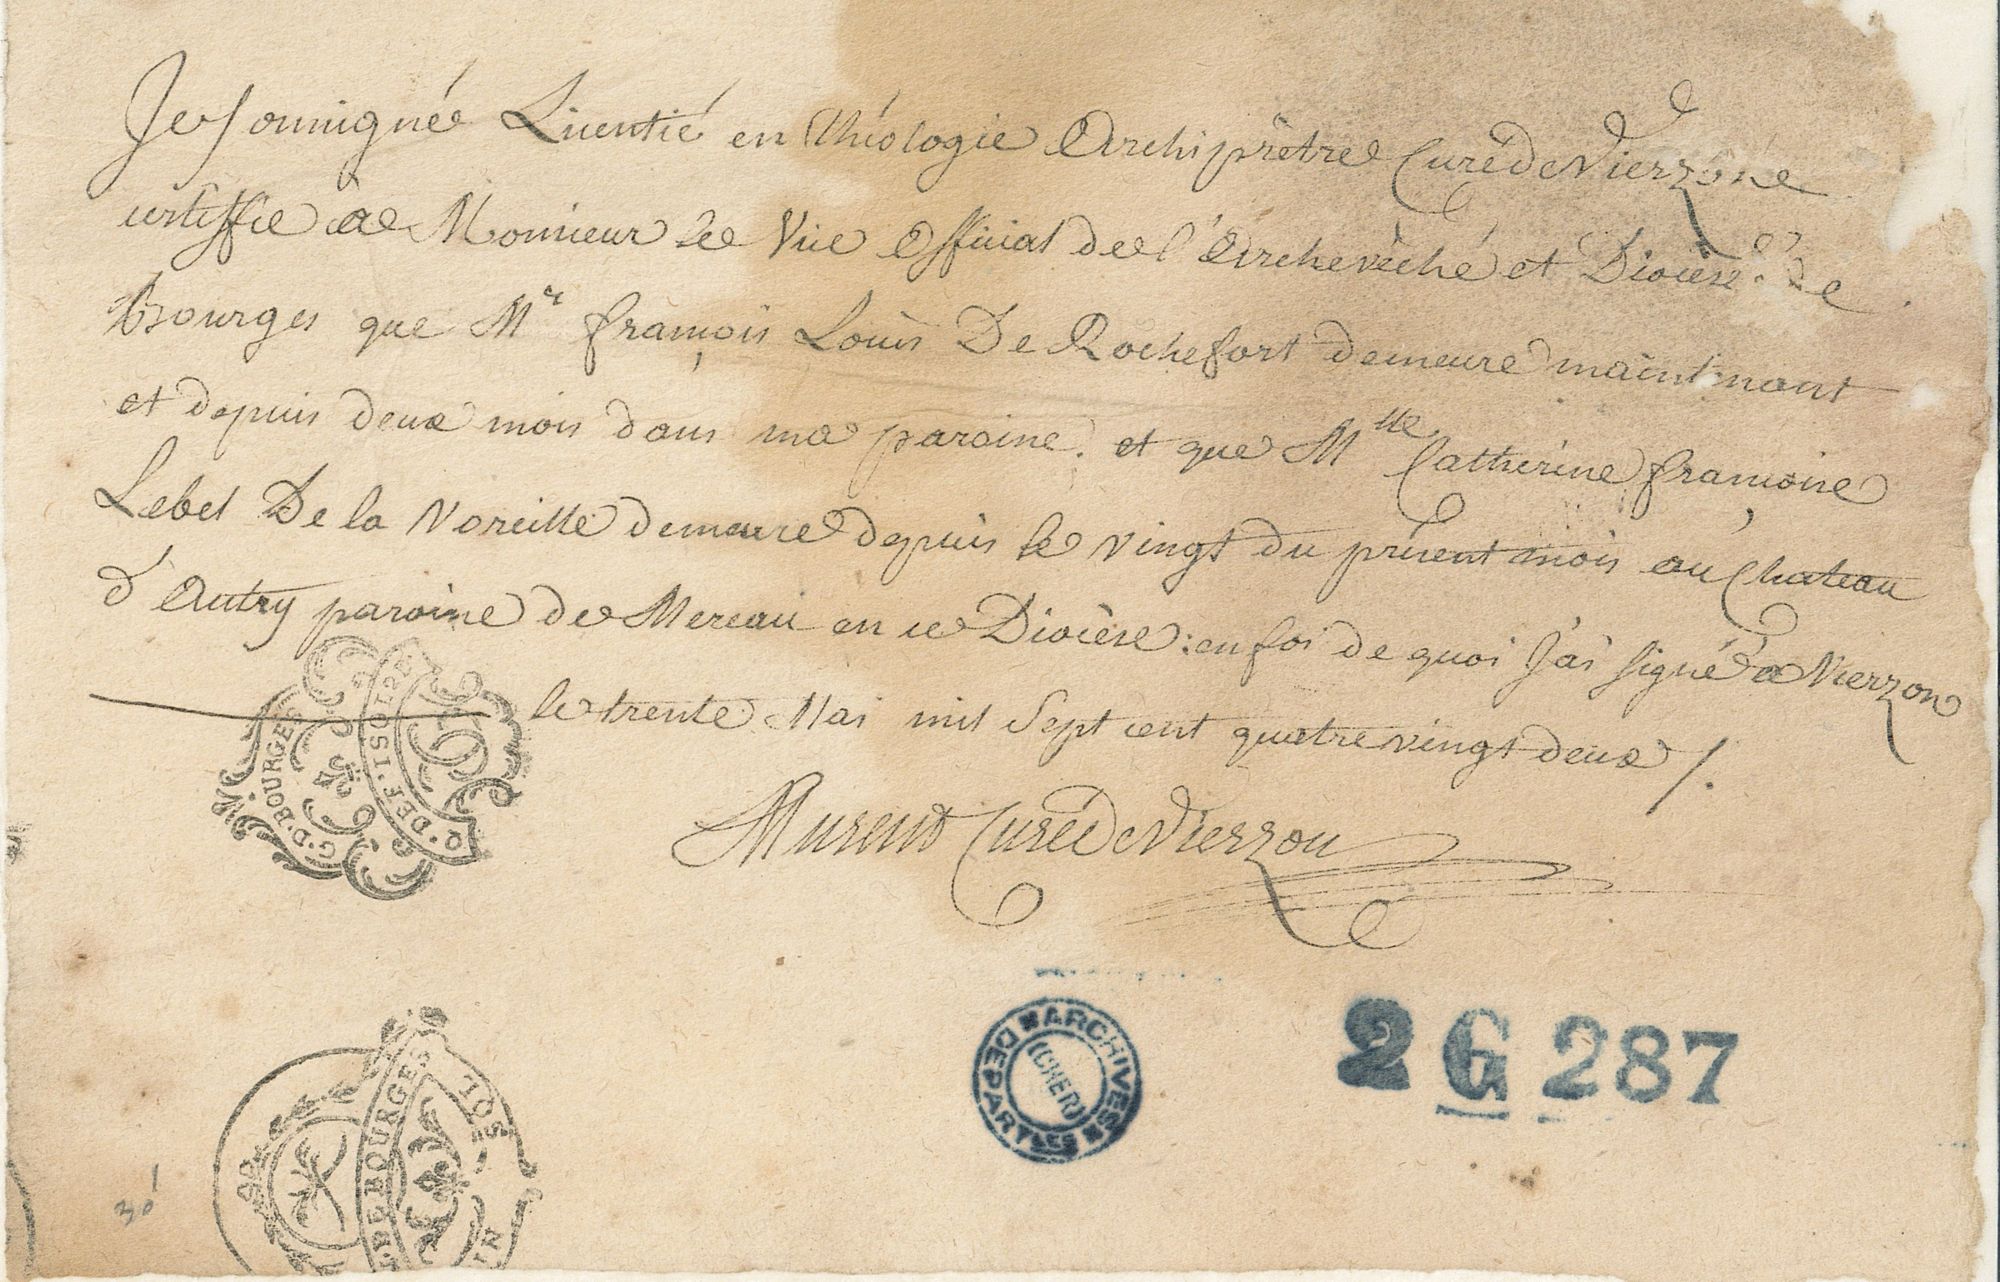 Je soussigné Licentié en Théologie Archiprêtre Curé de Vierzon
certiffie a Monsieur le Vice Official de l'Archevêché et Diocèse de
Bourges que Mr François Louis De Rochefort demeure maintenant
et depuis deux mois dans ma paroisse. et que Mlle Catherine Françoise
Lebel De la Voreille demeure depuis le vingt du présent mois au Château
d'Autry paroisse de Mereau en ce Diocèse : en foi de quoi J'ai signé a Vierzon
le trente Mai mil sept cent quatre vingt deux /.
Curé de Vierzon
G. D. BOURGES
Q. DEF. 1 SOL
ARCHIVES DEPARTLES
(CHER)
2 G 287
BOURGES
SOL
30